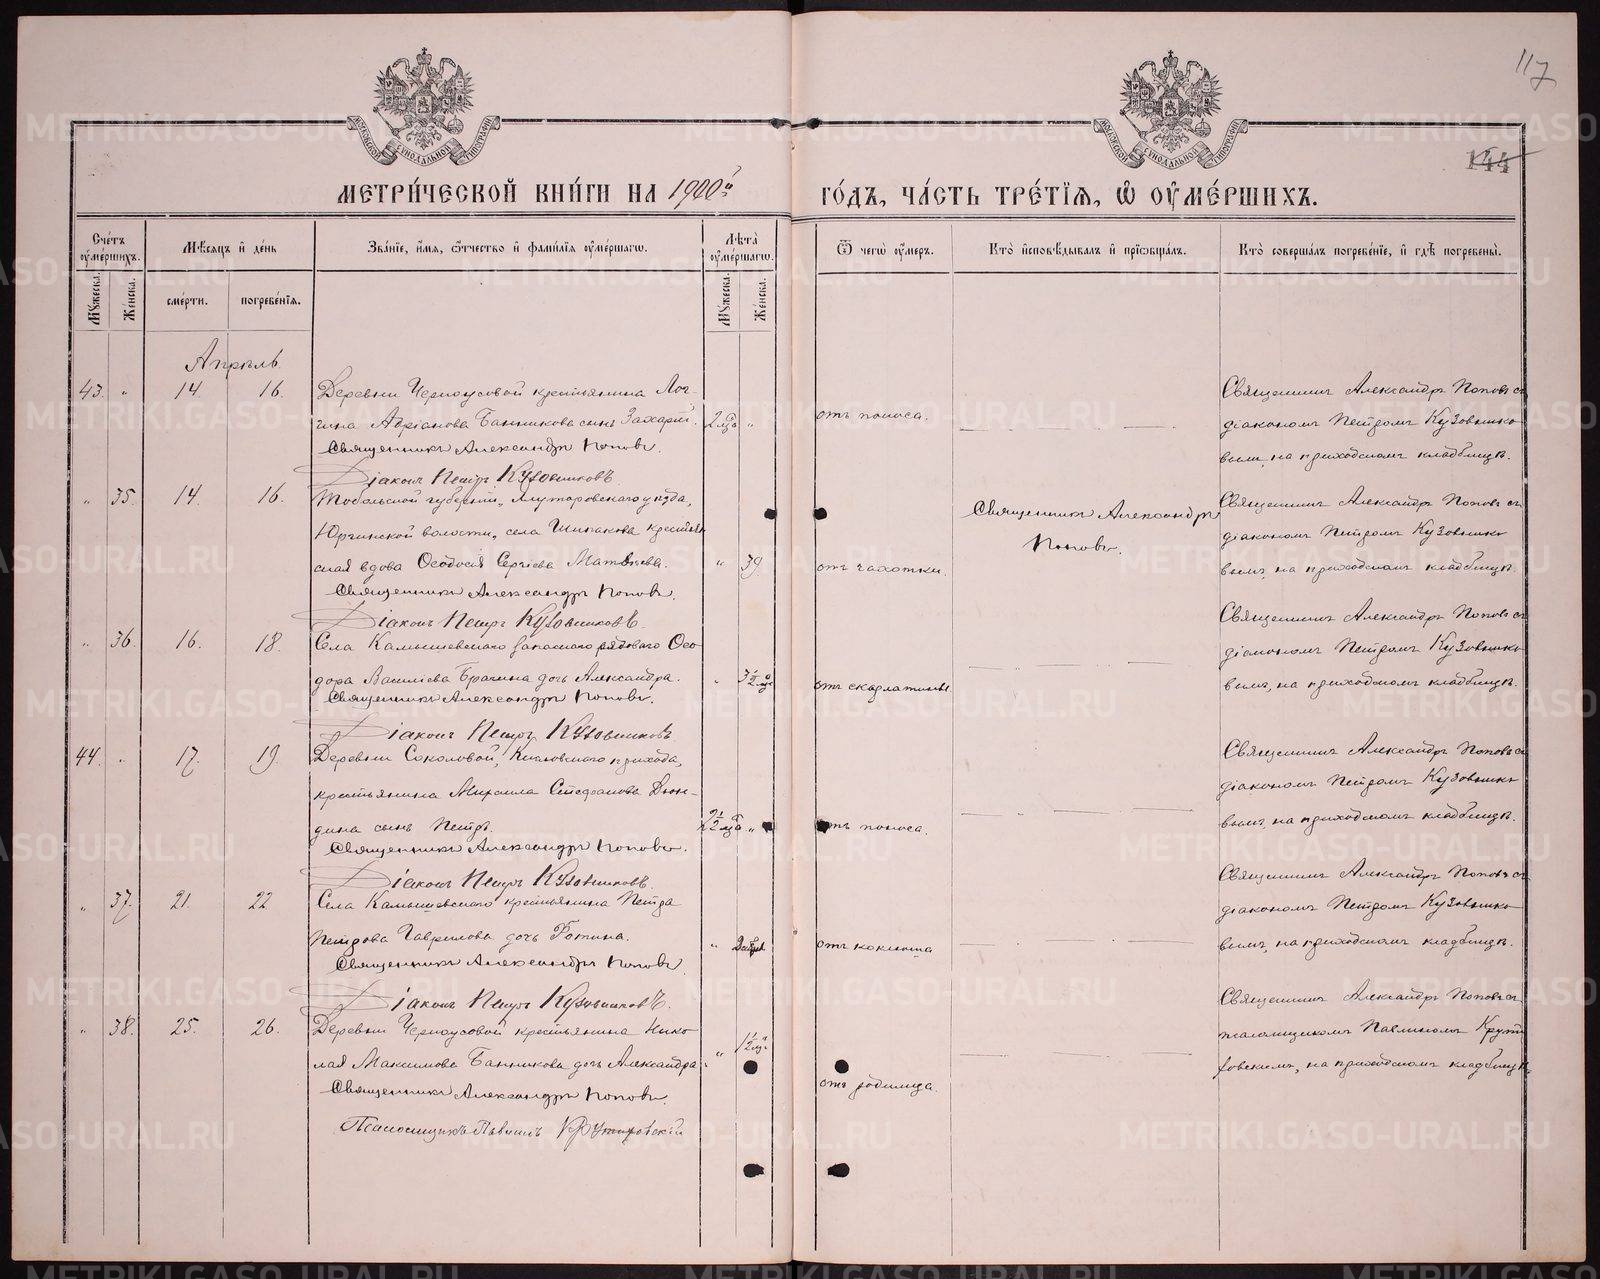 117
144
МОСКОВСКОЙ СУНОДАЛЬНОЙ ТИПОГРАФІИ
МОСКОВСКОЙ СУНОДАЛЬНОЙ ТИПОГРАФІИ
МЕТРИ́ЧЕСКОЙ КНИ́ГИ НА 1900й ГО́ДЪ, ЧА́СТЬ ТРЕ́ТЇЯ, Ѡ҆ ОУ҆МЕ́РШИХЪ.
Сче́тъ оу҆ме́ршихъ.
Мѣ́сяцъ и҆ де́нь
Зва́нїе, и҆́мя, ѻ҆́тчество и҆ фами́лїя оу҆ме́ршагѡ.
Лѣ́та оу҆ме́ршагѡ.
Ѿ чегѡ̀ оу҆́меръ.
Кто̀ и҆сповѣ́дывалъ и҆ прїѡбща́лъ.
Кто̀ соверша́лъ погребе́нїе, и҆ гдѣ̀ погребены̀.
Му́жеска.
Же́нска.
сме́рти.
погребе́нїя.
Му́жеска.
Же́нска.
Апрѣль
43. " 14. 16. Деревни Черноусовой крестьянина Лог-
гина Адріанова Банникова сынъ Захарій. 2 мца " отъ поноса.
Священникъ Александръ Поповъ.
Діаконъ Петръ Кузовниковъ.
Священникъ Александръ Поповъ съ
діакономъ Петромъ Кузовнико-
вымъ, на приходскомъ кладбищѣ.
" 35. 14. 16. Тобольской губерніи, Ялуторовскаго уѣзда,
Юргинской волости, села Шипакова крестьян-
ская вдова Ѳеодосія Сергіева Матвѣева. " 39. отъ чахотки.
Священникъ Александръ Поповъ.
Діаконъ Петръ Кузовниковъ.
Священникъ Александръ
Поповъ.
Священникъ Александръ Поповъ съ
діакономъ Петромъ Кузовнико-
вымъ, на приходскомъ кладбищѣ.
" 36. 16. 18. Села Камышевскаго запаснаго рядоваго Ѳео-
дора Василіева Брагина дочь Александра. " 3 1/2 отъ скарлатины.
Священникъ Александръ Поповъ.
Діаконъ Петръ Кузовниковъ.
Священникъ Александръ Поповъ съ
діакономъ Петромъ Кузовнико-
вымъ, на приходскомъ кладбищѣ.
44. " 17. 19. Деревни Соколовой, Кисловскаго прихода,
крестьянина Михаила Стефанова Дюн-
дина сынъ Петръ. " отъ поноса.
Священникъ Александръ Поповъ.
Діаконъ Петръ Кузовниковъ.
Священникъ Александръ Поповъ съ
діакономъ Петромъ Кузовнико-
вымъ, на приходскомъ кладбищѣ.
" 37. 21. 22. Села Камышевскаго крестьянина Петра
Петрова Гаврилова дочь Фотина. " отъ коклюша
Священникъ Александръ Поповъ.
Діаконъ Петръ Кузовниковъ.
Священникъ Александръ Поповъ съ
діакономъ Петромъ Кузовнико-
вымъ, на приходскомъ кладбищѣ.
" 38. 25. 26. Деревни Черноусовой крестьянина Нико-
лая Максимова Банникова дочь Александра. " 1 1/2 отъ родимца.
Священникъ Александръ Поповъ.
Псаломщикъ Павлинъ Крутиховскій
Священникъ Александръ Поповъ съ
псаломщикомъ Павлиномъ Крути-
ховскимъ, на приходскомъ кладбищѣ.
METRIKI.GASO-URAL.RU